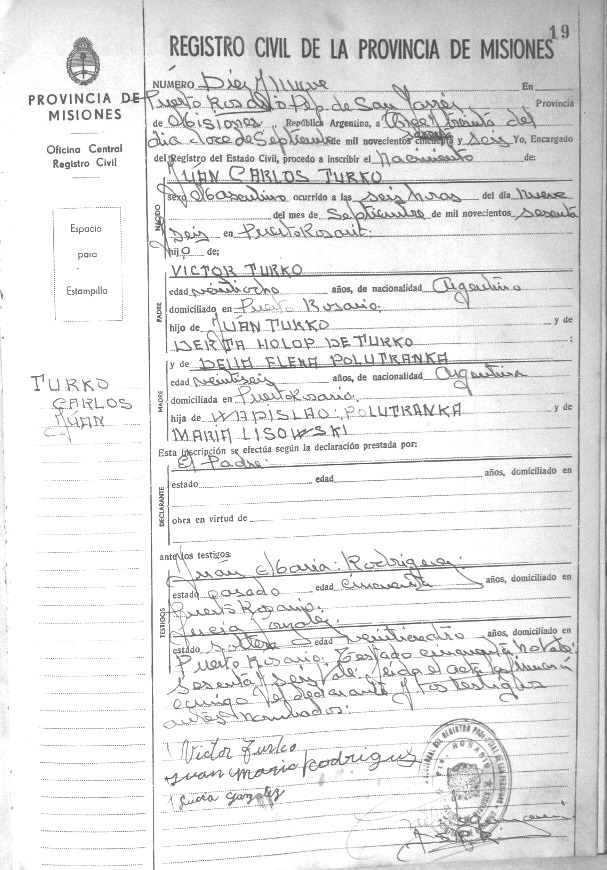 19
REGISTRO CIVIL DE LA PROVINCIA DE MISIONES
PROVINCIA DE
MISIONES
Oficina Central
Registro Civil
Espacio
para
Estampilla
TURKO
CARLOS
JUAN
NUMERO Diez Nueve En
Puerto Rosario Dep. de San Javier Provincia
de Misiones República Argentina, a treinta del
dia doce de Septiembre de mil novecientos cincuenta y seis Yo, Encargado
del Registro del Estado Civil, procedo a inscribir el Nacimiento de:
JUAN CARLOS TURKO
NACIDO
sexo Masculino ocurrido a las seis hras del día nueve
del mes de Septiembre de mil novecientos sesenta
y seis en Puerto Rosario
hijo de:
PADRE
VICTOR TURKO
edad veintiocho años, de nacionalidad Argentino
domiciliado en Puerto Rosario;
hijo de JUAN TURKO y de
BERTA HOLOP DE TURKO ;
y de DELIA ELENA POLUTRANKA
MADRE
edad veintiseis años, de nacionalidad Argentina
domiciliada en Puerto Rosario
hija de WADISLAO: POLUTRANKA y de
MARIA LISOWSKI
Esta inscripción se efectúa según la declaración prestada por:
El Padre:
DECLARANTE
estado edad años, domiciliado en
obra en virtud de
ante los testigos:
TESTIGOS
Juan Maria: Rodriguez:
estado casado edad cincuenta años, domiciliado en
Puerto Rosario;
Lucia Gonzalez
estado soltera edad veinticuatro años, domiciliado en
Puerto Rosario: Testado cincuenta
sesenta y seis Leida el acta la firman
conmigo el declarante y los testigos
antes nombrados:
Victor Turko
Juan Maria Rodriguez
Lucia Gonzalez